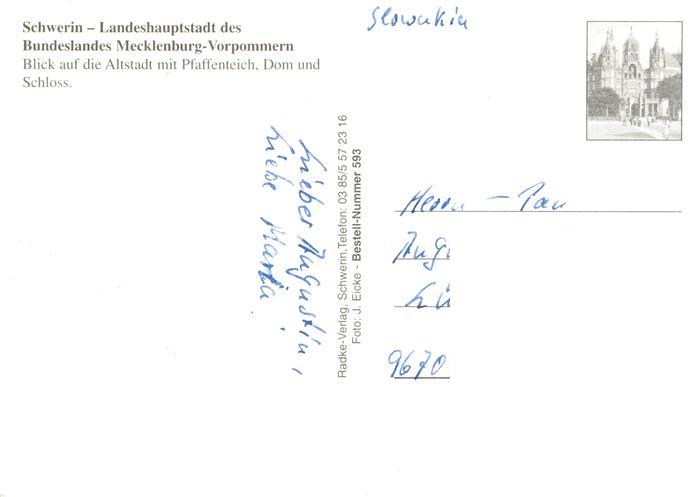 Schwerin – Landeshauptstadt des
Bundeslandes Mecklenburg-Vorpommern
Blick auf die Altstadt mit Pfaffenteich, Dom und
Schloss.
Slowakia
Lieber Augustin,
Liebe Maria!
Radke-Verlag, Schwerin,Telefon: 03 85/5 57 23 16
Foto: J. Eicke - Bestell-Nummer 593
Herrn – Pan
Aug
Lü
9670